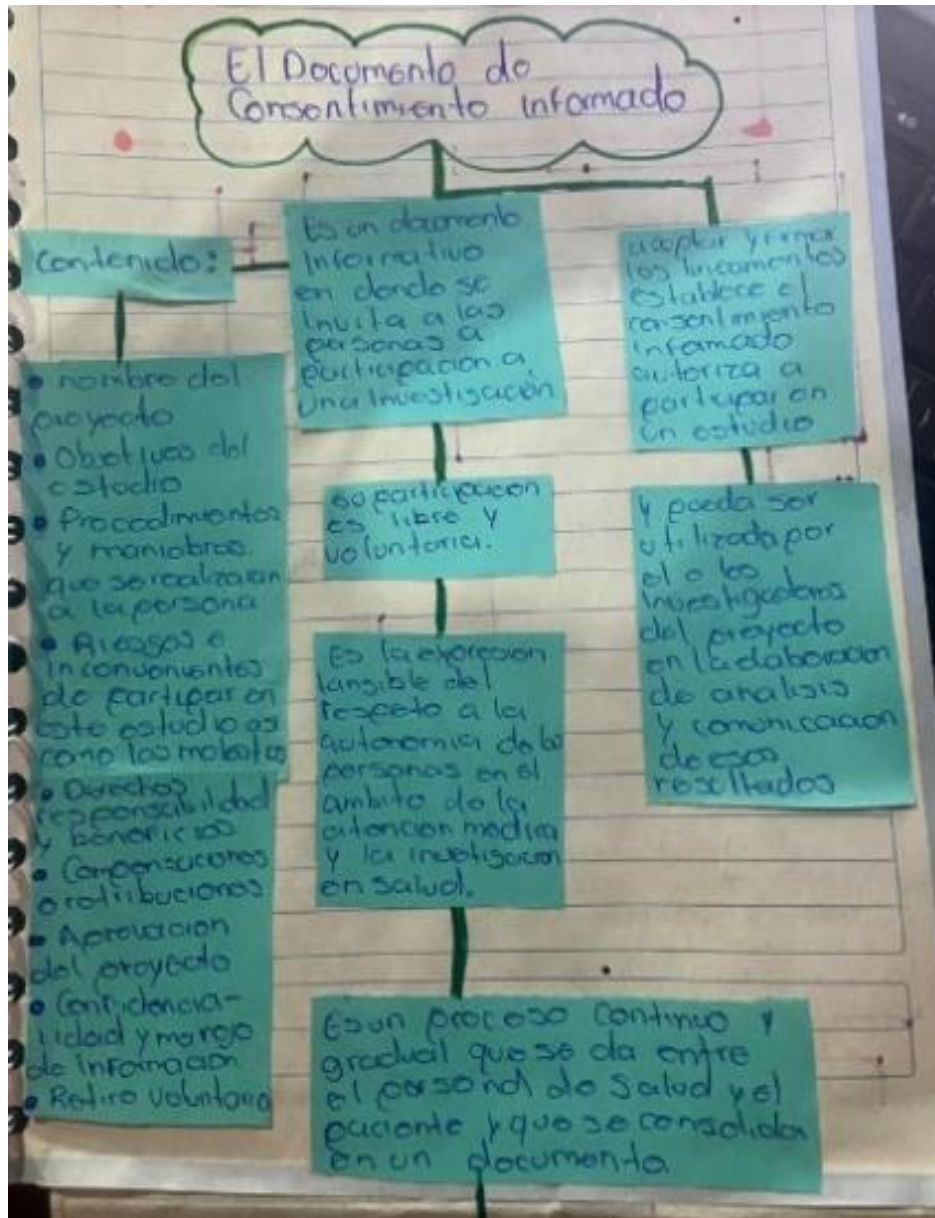 El Documento de
Consentimiento informado
Contenido:
• nombre del
proyecto
• Objetivos del
estudio
• Procedimientos
y maniobras
que se realizaran
a la persona
• Riesgos e
inconvenientes
de partipar en
este estudio as
como las molestias
• Derechos
responsabilidad
y beneficios
• Compensaciones
o retribuciones
• Aprovacion
del proyecto
• Confidencia-
lidad y manejo
de informacion
• Retiro voluntario
Es un documento
informativo
en donde se
invita a las
personas a
participacion a
una investigación
so participacion
es libre y
voluntaria.
Es la expresion
tangible del
respeto a la
autonomia de las
personas en el
ambito de la
atencion medica
y la investigacion
en salud.
Es un proceso continuo y
gradual que se da entre
el personal de salud y el
paciente y que se consolida
en un documento
aceptar y firmar
los lineamentos
establece el
consentimiento
infamado
autoriza a
participar en
un estudio
y pueda ser
utilizada por
el o los
investigadores
del proyecto
en la elaboracion
de analisis
y comunicacion
de esos
resultados